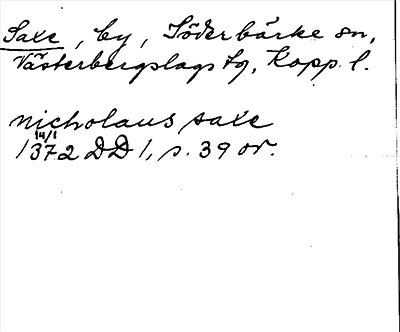 Saxe, by, Söderbärke sn,
Västerbergslags tg, Kopp. l.
nicholaus saxe
14/1
1372 DD 1, s. 39 or.